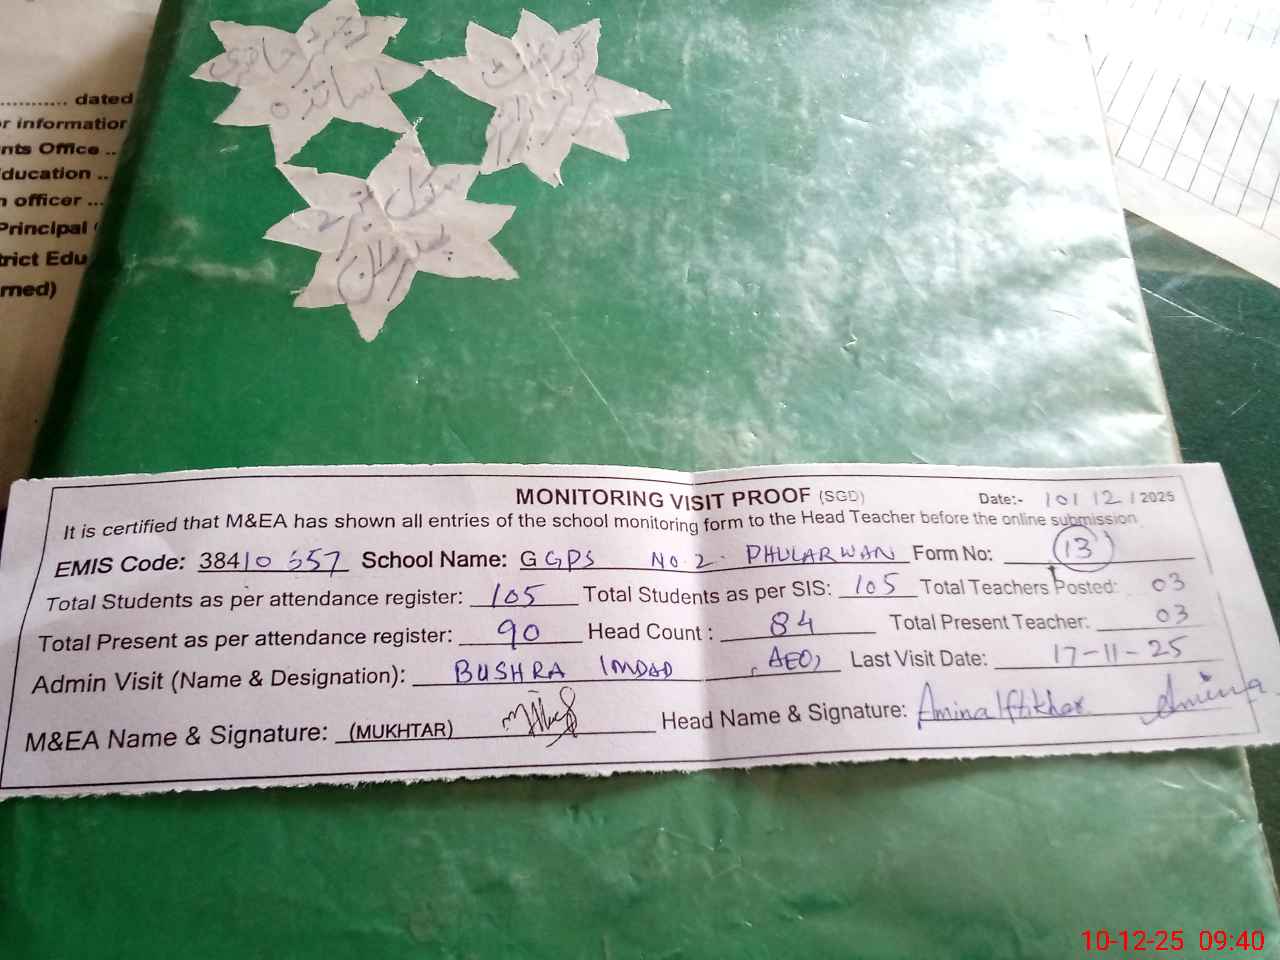 ............ dated
or information
nts Office ..
ducation ..
n officer ...
Principal (
trict Edu
rned)
رجسٹر حاضری
اساتذہ
گورنمنٹ
گرلز پرائمری
سکول نمبر 2
پھلروان
MONITORING VISIT PROOF (SGD)
Date:- 10/12/2025
It is certified that M&EA has shown all entries of the school monitoring form to the Head Teacher before the online submission
EMIS Code: 38410557 School Name: GGPS No 2. PHULARWAN Form No: 13
Total Students as per attendance register: 105 Total Students as per SIS: 105 Total Teachers Posted: 03
Total Present as per attendance register: 90 Head Count : 84 Total Present Teacher: 03
Admin Visit (Name & Designation): BUSHRA IMDAD (AEO) Last Visit Date: 17-11-25
M&EA Name & Signature: (MUKHTAR) Head Name & Signature: Amina Iftikhar Amina
10-12-25 09:40